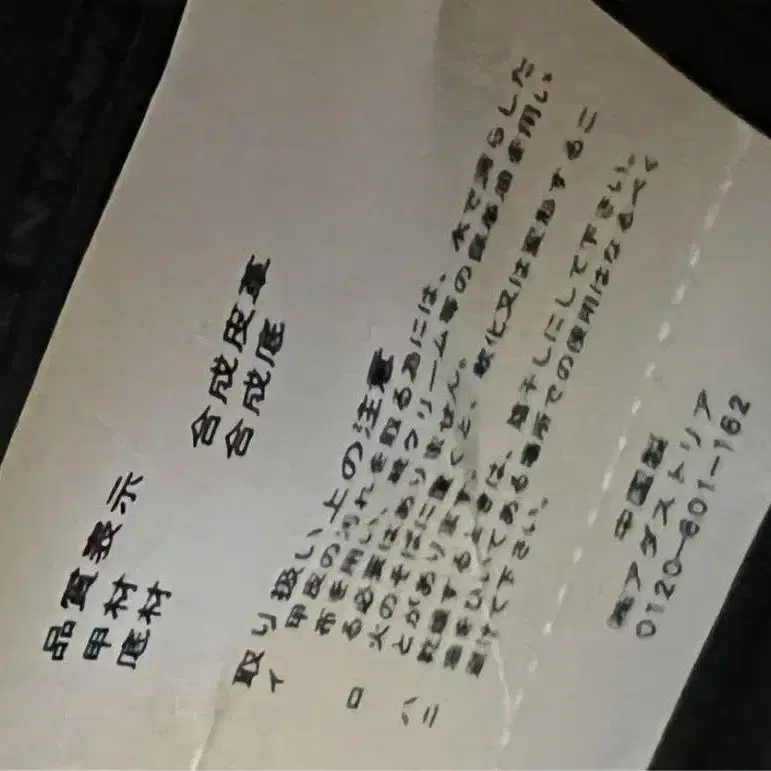 品質表示
甲材 合成皮革
底材 合成底
取り扱い上の注意
イ 甲皮の汚れを取るには、水で濡らした
布を用い、靴クリーム等の保革油を用い
る必要はありません。
ロ 火のそばに置くと、軟化又は変形するこ
とがあります。
ハ 乾燥するときは、陰干しにして下さい。
ニ 油をひいてある場所での使用はなるべく
避けて下さい。
中国製
㈱アダストリア
0120-601-162